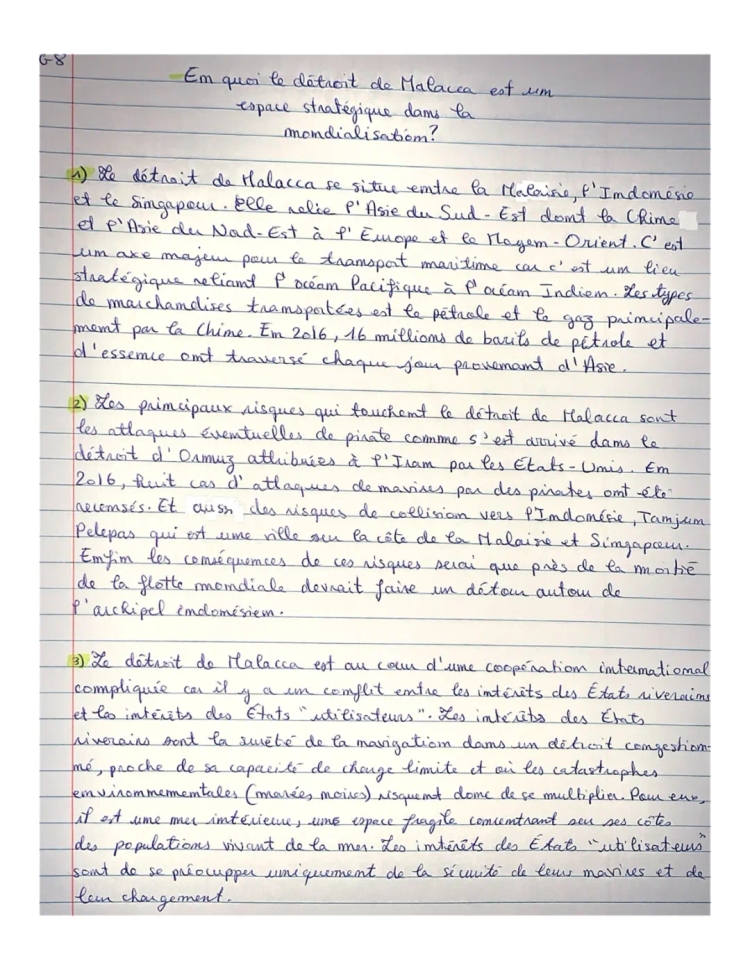 G-8
En quoi le détroit de Malacca est un
espace stratégique dans la
mondialisation?
1) Le détroit de Malacca se situe entre la Malaisie, l'Indonésie
et le Singapour. Elle relie l'Asie du Sud-Est dont la Chine
et l'Asie du Nod-Est à l'Europe et le Moyen-Orient. C'est
un axe majeur pour le transport maritime car c'est un lieu
stratégique reliant l'océan Pacifique à l'océan Indien. Les types
de marchandises transportées est le pétrole et le gaz principale-
ment par la Chine. En 2016, 16 millions de barils de pétrole et
d'essence ont traversé chaque jour provenant d'Asie.
2) Les principaux risques qui touchent le détroit de Malacca sont
les attaques éventuelles de pirate comme s'est arrivé dans le
détroit d'Ormuz attribuées à l'Iran par les Etats-Unis. Em
2016, huit cas d'attaques de navires par des pirates ont été
recensés. Et aussi des risques de collision vers l'Indonésie, Tanjun
Pelepas qui est une ville sur la côte de la Malaisie et Singapour.
Enfin les conséquences de ces risques serai que près de la moitié
de la flotte mondiale devrait faire un détour autour de
l'archipel indonésien.
3) Le détroit de Malacca est au cœur d'une coopération international
compliquée car il y a un conflit entre les intérêts des États riverains
et les intérêts des États "utilisateurs". Les intérêts des États
riverains sont la sureté de la navigation dans un détroit congestion-
né, proche de sa capacité de charge limite et où les catastrophes
environnementales (marées noires) risquent donc de se multiplier. Pour eux,
il est une mer intérieure, une espace fragile concentrant sur ses côtes
des populations vivant de la mer. Les intérêts des États "utilisateurs"
sont de se préocupper uniquement de la sécurité de leurs navires et de
leur chargement.